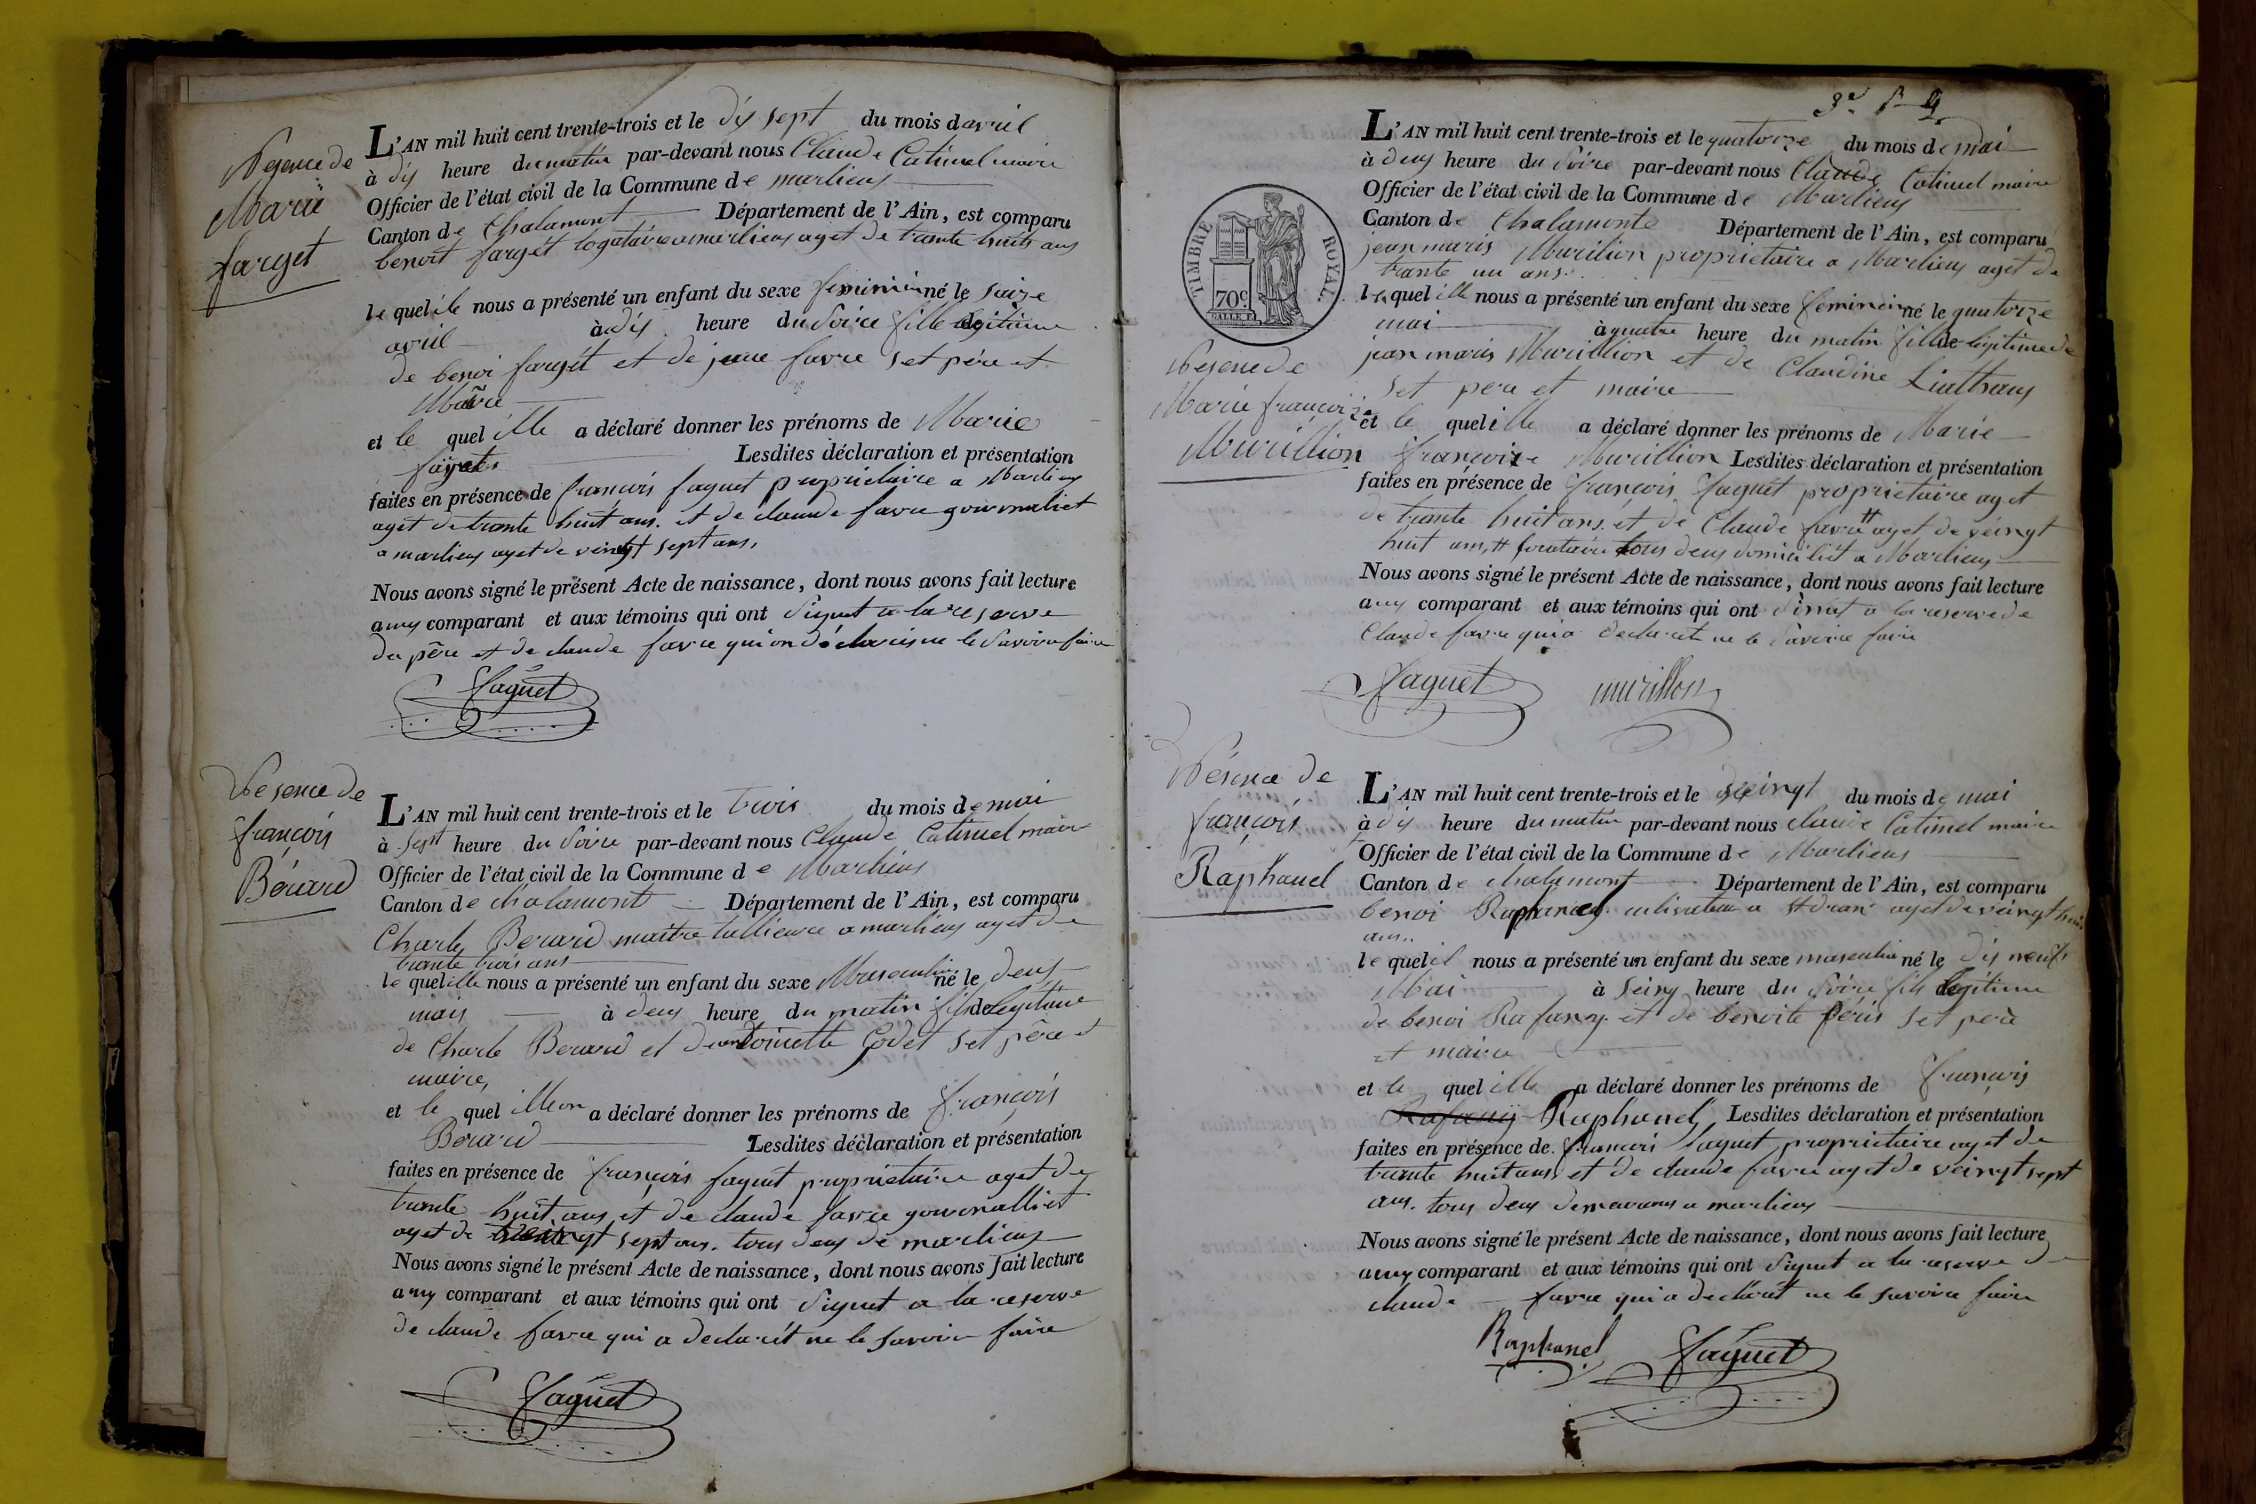 Nesence de
Marie
farget
L'AN mil huit cent trente-trois et le dix sept du mois d avril
à dix heure du matin par-devant nous Claude Catimel maire
Officier de l'état civil de la Commune de marlieux
Canton de Chalamont Département de l'Ain, est comparu
benoit farget a marlieux aget de trante huits ans
le quel ile nous a présenté un enfant du sexe feminin né le saize
avril à dix heure du soire fille legitime
de benoi farget et de jeane favre set père et
Maire
et le quel ille a déclaré donner les prénoms de Marie
Lesdites déclaration et présentation
faites en présence de françois faguet propriétaire a Marlieux
aget de trante huit ans. et de claude favre
a marlieux aget de veingt sept ans,
Nous avons signé le présent Acte de naissance, dont nous avons fait lecture
aux comparant et aux témoins qui ont signet a la reserve
du père et de claude favre qui on ne le savoire faire
faguet
Nesence de
françois
Bérard
L'AN mil huit cent trente-trois et le trois du mois de mai
à sept heure du soire par-devant nous Claude Catimel maire
Officier de l'état civil de la Commune de Marlieux
Canton de chalamont Département de l'Ain, est comparu
Charle Berard maitre a marlieux aget de
trante trois ans
le quel ille nous a présenté un enfant du sexe Masculin né le deux
mais à deux heure du matin fils de legitime
de Charle Berard et de antoinette Godet set père et
maire,
et le quel illeon a déclaré donner les prénoms de françois
Berard Lesdites déclaration et présentation
faites en présence de françois faguet propriétaire aget de
trante huit ans et de claude favre
aget de veingt sept ans. tous deux de marlieux
Nous avons signé le présent Acte de naissance, dont nous avons fait lecture
aux comparant et aux témoins qui ont signet a la reserve
de claude favre qui a declarét ne le savoir faire
faguet
TIMBRE ROYAL
70c
Nesence de
Marie françoise
Murillion
L'AN mil huit cent trente-trois et le quatorze du mois de mai
à deux heure du soire par-devant nous Claude Catimel maire
Officier de l'état civil de la Commune de Marlieux
Canton de Chalamonte Département de l'Ain, est comparu
jean maris Murilion proprietaire a Marlieux aget de
trante un ans.
le quel ille nous a présenté un enfant du sexe feminin né le quatorze
mai à quatre heure du matin fille de legitime de
jean maris Murillion et de Claudine
set pere et maire
et le quel ille a déclaré donner les prénoms de Marie
françoise Murillion Lesdites déclaration et présentation
faites en présence de françois faguet proprietaire aget
de trante huit ans. et de Claude favre aget de veingt
huit ans, tous deux domicilié a Marlieux
Nous avons signé le présent Acte de naissance, dont nous avons fait lecture
aux comparant et aux témoins qui ont a la reserve de
Claude favre qui a declaret ne le savoire faire
faguet murillon
Nésence de
françois
Raphanel
L'AN mil huit cent trente-trois et le veingt du mois de mai
à dix heure du matin par-devant nous claude Catimel maire
Officier de l'état civil de la Commune de Marlieux
Canton de chalamont Département de l'Ain, est comparu
benoi Raphanel cultivateur a aget de veingt huit
ans..
le quel il nous a présenté un enfant du sexe masculin né le dix neuf
Mai à seinq heure du soire fils legitime
de benoi Rafany et de benoite set père
et maire
et le quel ille a déclaré donner les prénoms de françois
Rafany Raphanel Lesdites déclaration et présentation
faites en présence de françois faguet proprietaire aget de
trante huit ans et de claude favre aget de veingt sept
ans. tous deux a marlieux
Nous avons signé le présent Acte de naissance, dont nous avons fait lecture
aux comparant et aux témoins qui ont signet a la reserve de
claude favre qui a declarét ne le savoire faire
Raphanel faguet